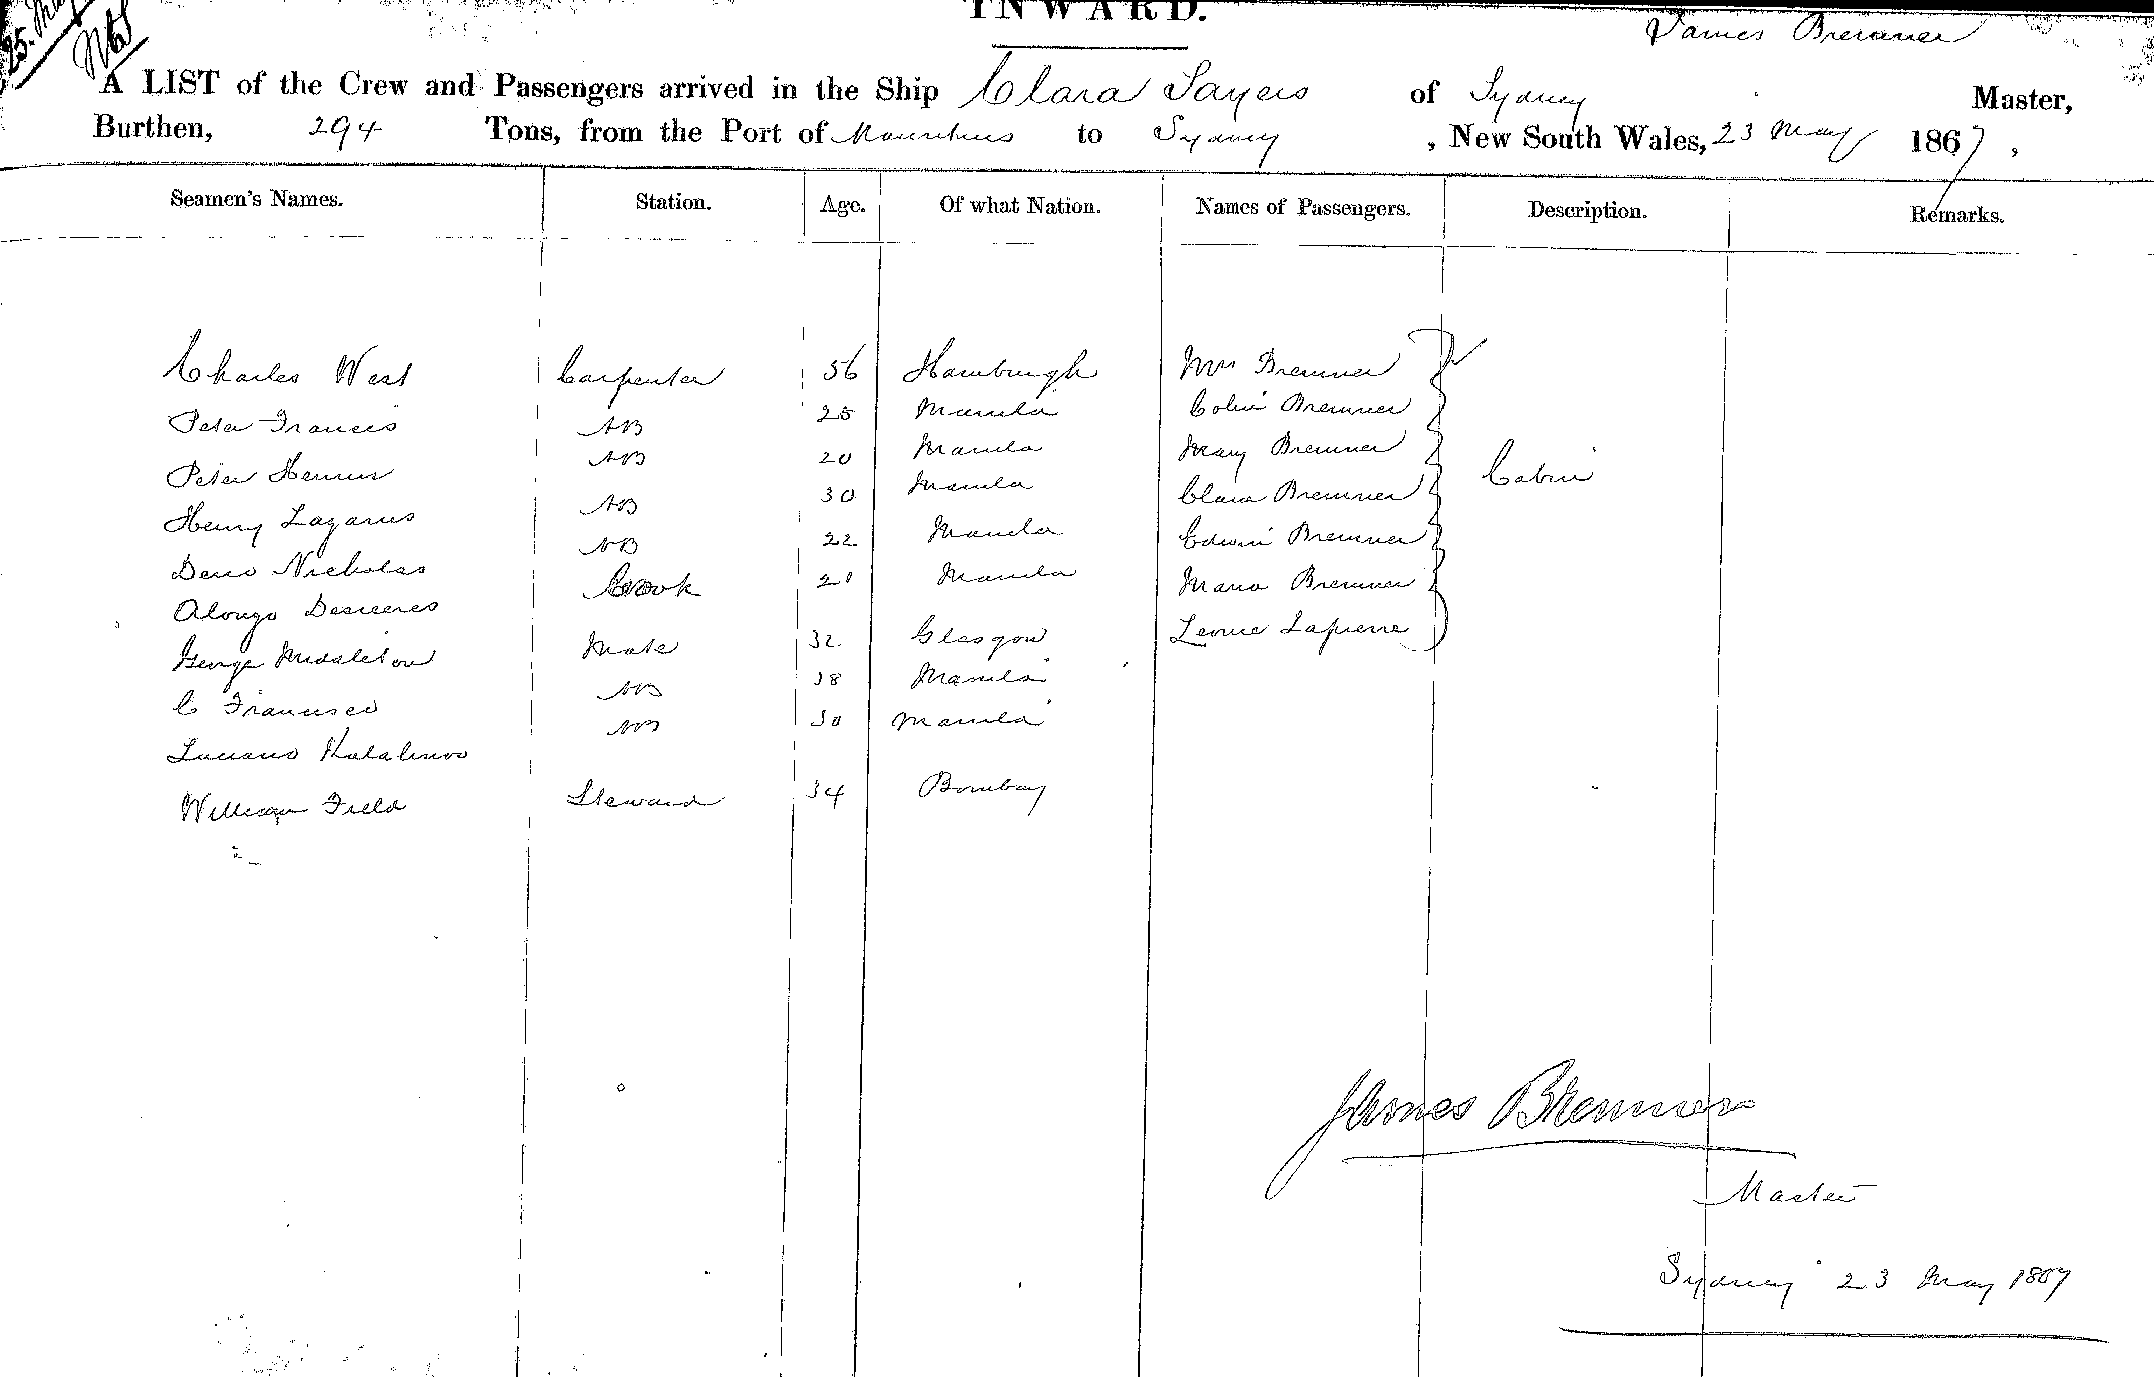 25. May
INWARD.
James Bremner
A LIST of the Crew and Passengers arrived in the Ship Clara Sayers of Sydney Master,
Burthen, 294 Tons, from the Port of Mauritius to Sydney, New South Wales, 23 May 1867,
Seamen's Names. Station. Age. Of what Nation. Names of Passengers. Description. Remarks.
Charles West Carpenter 56 Hamburgh Mrs Bremner
Peter Francis AB 25 Manila Colin Bremner
Peter AB 20 Manila Mary Bremner
Henry Lazarus AB 30 Manila Clara Bremner Cabin
Nicholas AB 22 Manila Edwin Bremner
Alonzo Cook 21 Manila Maria Bremner
George Middleton Mate 32 Glasgow Leonie Lapierre
C Francisco AB 38 Manila
Luciano AB 30 Manila
William Field Steward 34 Bombay
James Bremner
Master
Sydney 23 May 1867